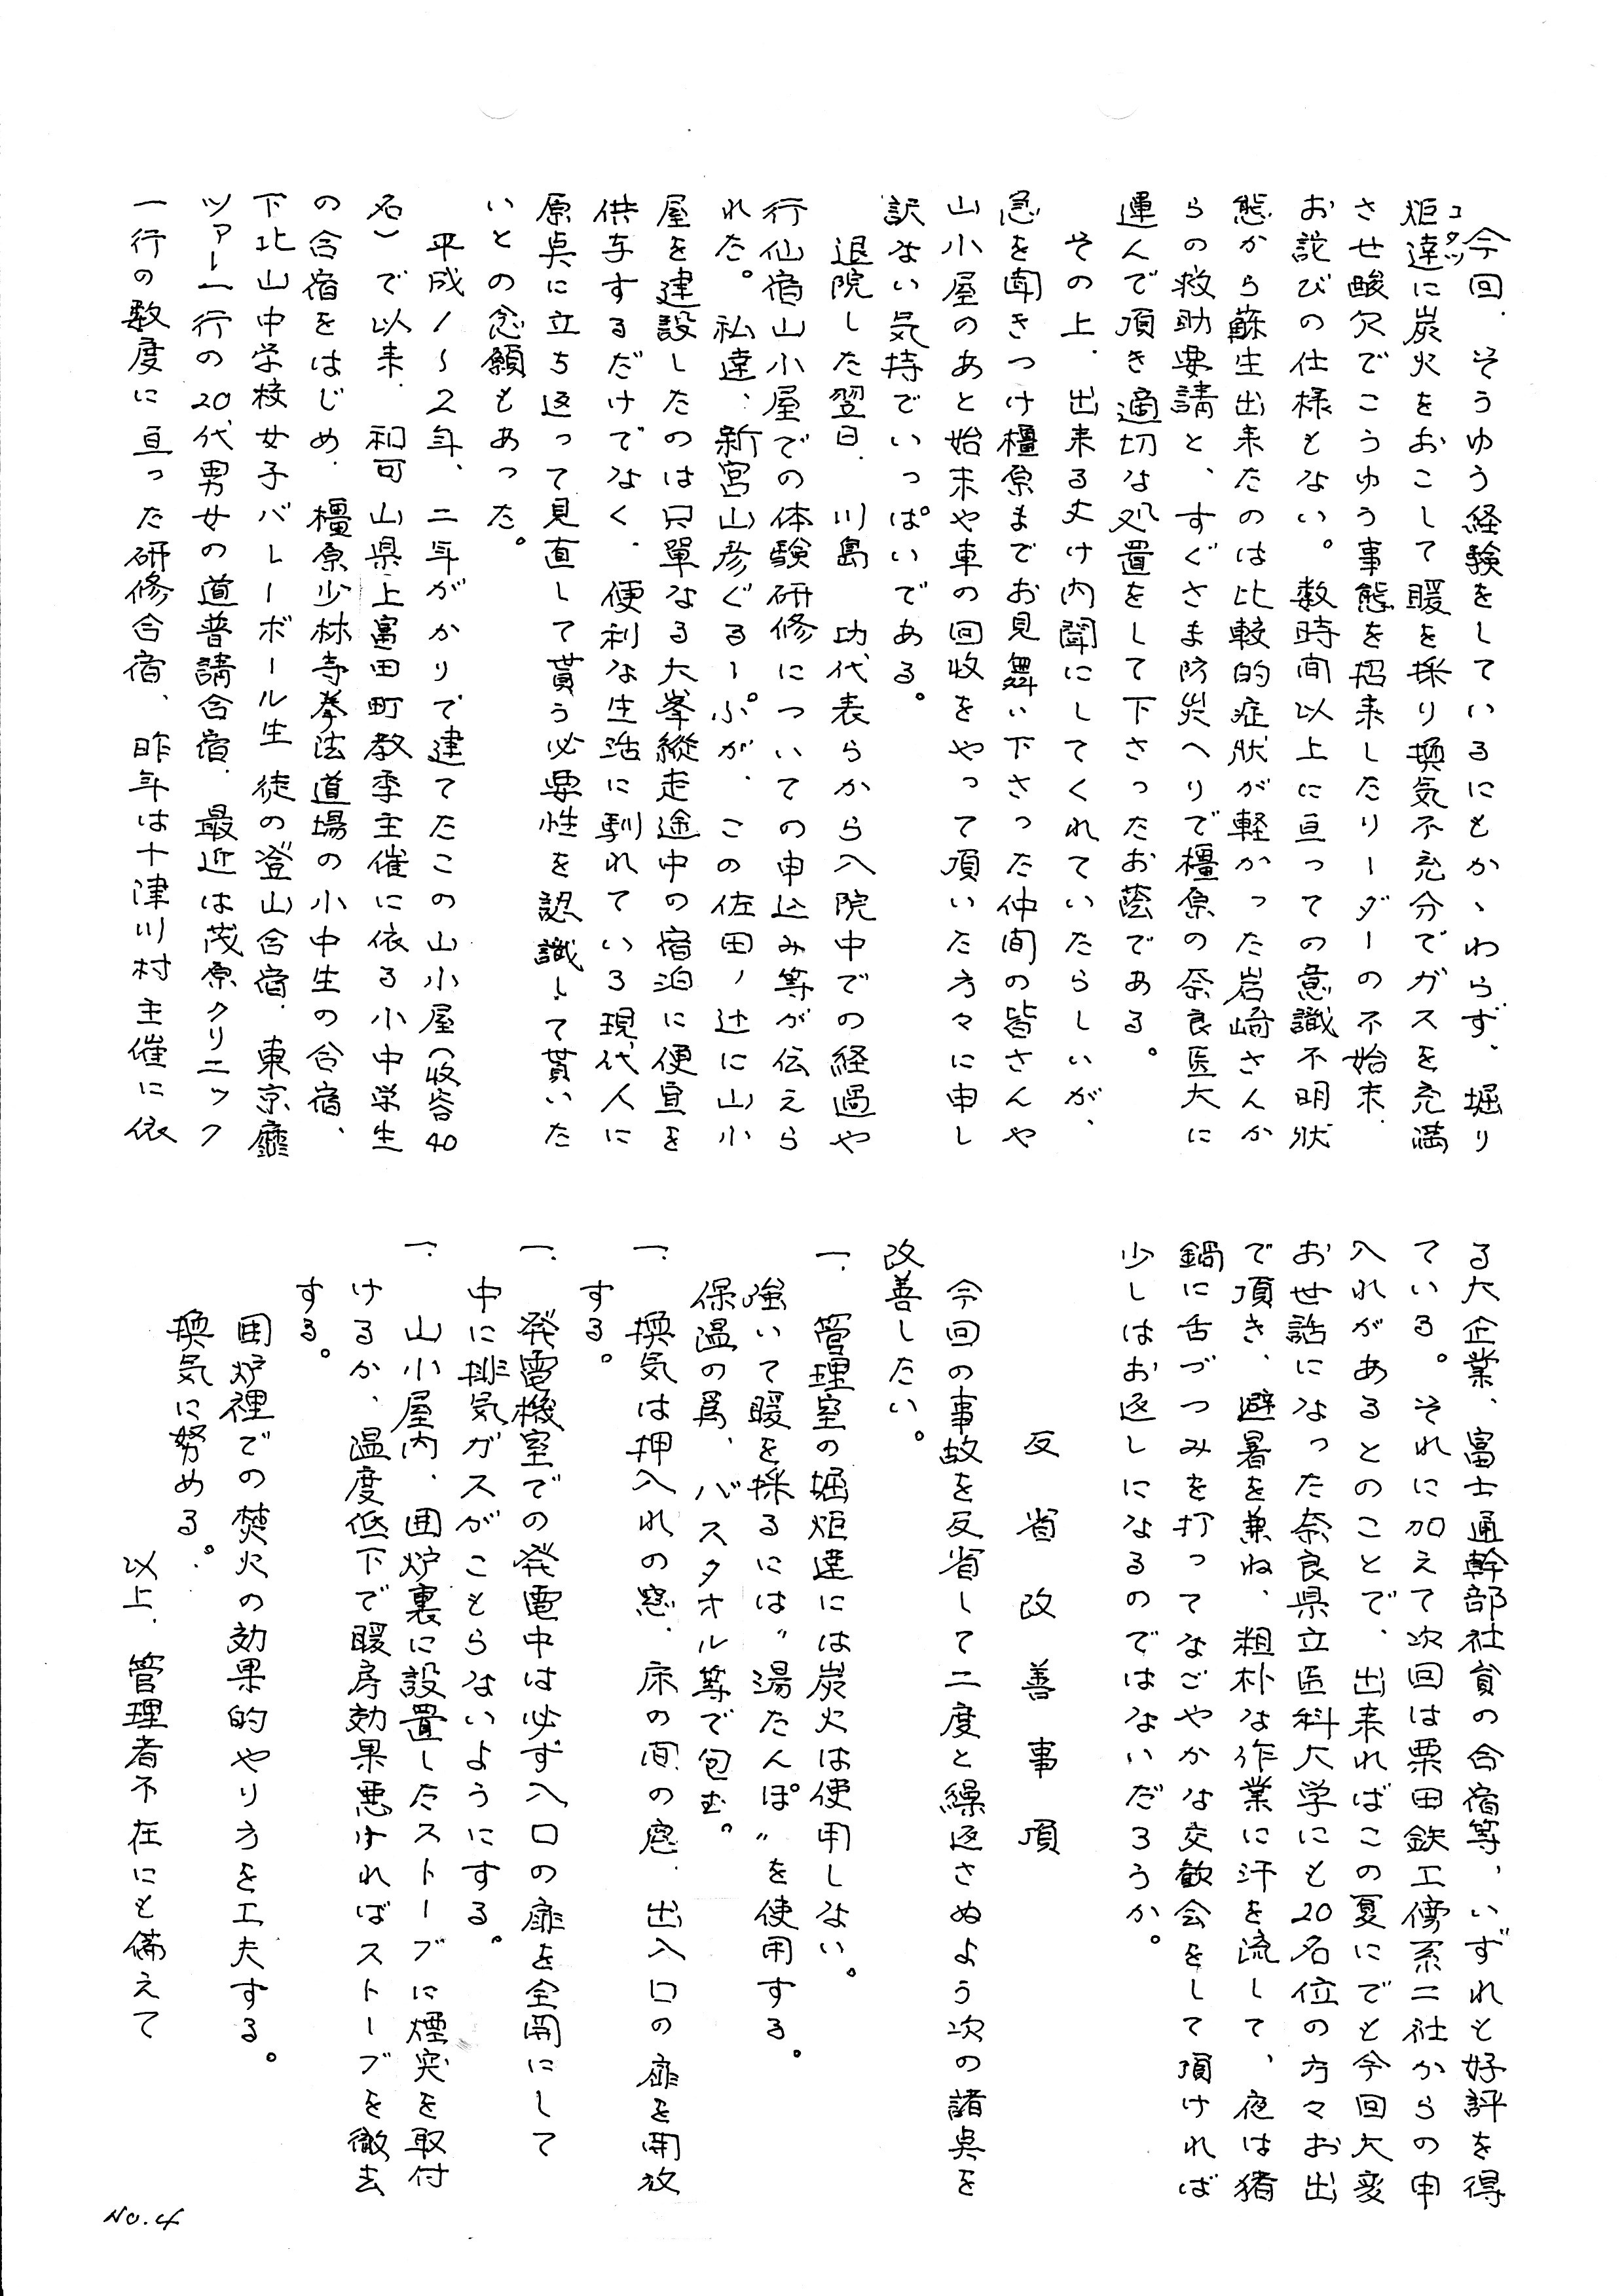 今回、そうゆう経験をしているにもかゝわらず、堀り
炬達に炭火をおこして暖を採り換気不充分でガスを充満
コタツ
させ酸欠でこうゆう事態を招来したリーダーの不始末、
お詑びの仕様もない。数時間以上に亘っての意識不明状
態から蘇生出来たのは比較的症状が軽かった岩崎さんか
らの救助要請と、すぐさま防災ヘリで橿原の奈良医大に
運んで頂き適切な処置をして下さったお蔭である。
その上、出来る丈け内聞にしてくれていたらしいが、
急を聞きつけ橿原までお見舞い下さった仲間の皆さんや
山小屋のあと始末や車の回収をやって頂いた方々に申し
訳ない気持でいっぱいである。
退院した翌日、川島　功代表らから入院中での経過や
行仙宿山小屋での体験研修についての申込み等が伝えら
れた。私達、新宮山彦ぐるーぷが、この佐田ノ辻に山小
屋を建設したのは只単なる大峯縦走途中の宿泊に便宜を
供与するだけでなく、便利な生活に馴れている現代人に
原点に立ち返って見直して貰う必要性を認識して貰いた
いとの念願もあった。
平成1～2年、二年がかりで建てたこの山小屋（収容40
名）で以来、和可山県上富田町教季主催に依る小中学生
の合宿をはじめ、橿原少林寺拳法道場の小中生の合宿、
下北山中学校女子バレーボール生徒の登山合宿、東京廰
ツァー一行の20代男女の道普請合宿、最近は茂原クリニック
一行の数度に亘った研修合宿、昨年は十津川村主催に依
る大企業、富士通幹部社員の合宿等、いずれも好評を得
ている。それに加えて次回は栗田鉄工傍系二社からの申
入れがあるとのことで、出来ればこの夏にでも今回大変
お世話になった奈良県立医科大学にも20名位の方々お出
で頂き、避暑を兼ね、粗朴な作業に汗を流して、夜は猪
鍋に舌づつみを打ってなごやかな交歓会をして頂ければ
少しはお返しになるのではないだろうか。
反省改善事項
今回の事故を反省して二度と繰返さぬよう次の諸点を
改善したい。
一、管理室の堀炬達には炭火は使用しない。
強いて暖を採るには〃湯たんぽ〃を使用する。
保温の為、バスタオル等で包む。
一、換気は押入れの窓、床の間の窓、出入口の扉を開放
する。
一、発電機室での発電中は必ず入口の扉を全開にして
中に排気ガスがこもらないようにする。
一、山小屋内、囲炉裏に設置したストーブに煙突を取付
けるか、温度低下で暖房効果悪ければストーブを撤去
する。
囲炉裡での焚火の効果的やり方を工夫する。
換気に努める。
以上、管理者不在にも備えて
No.4